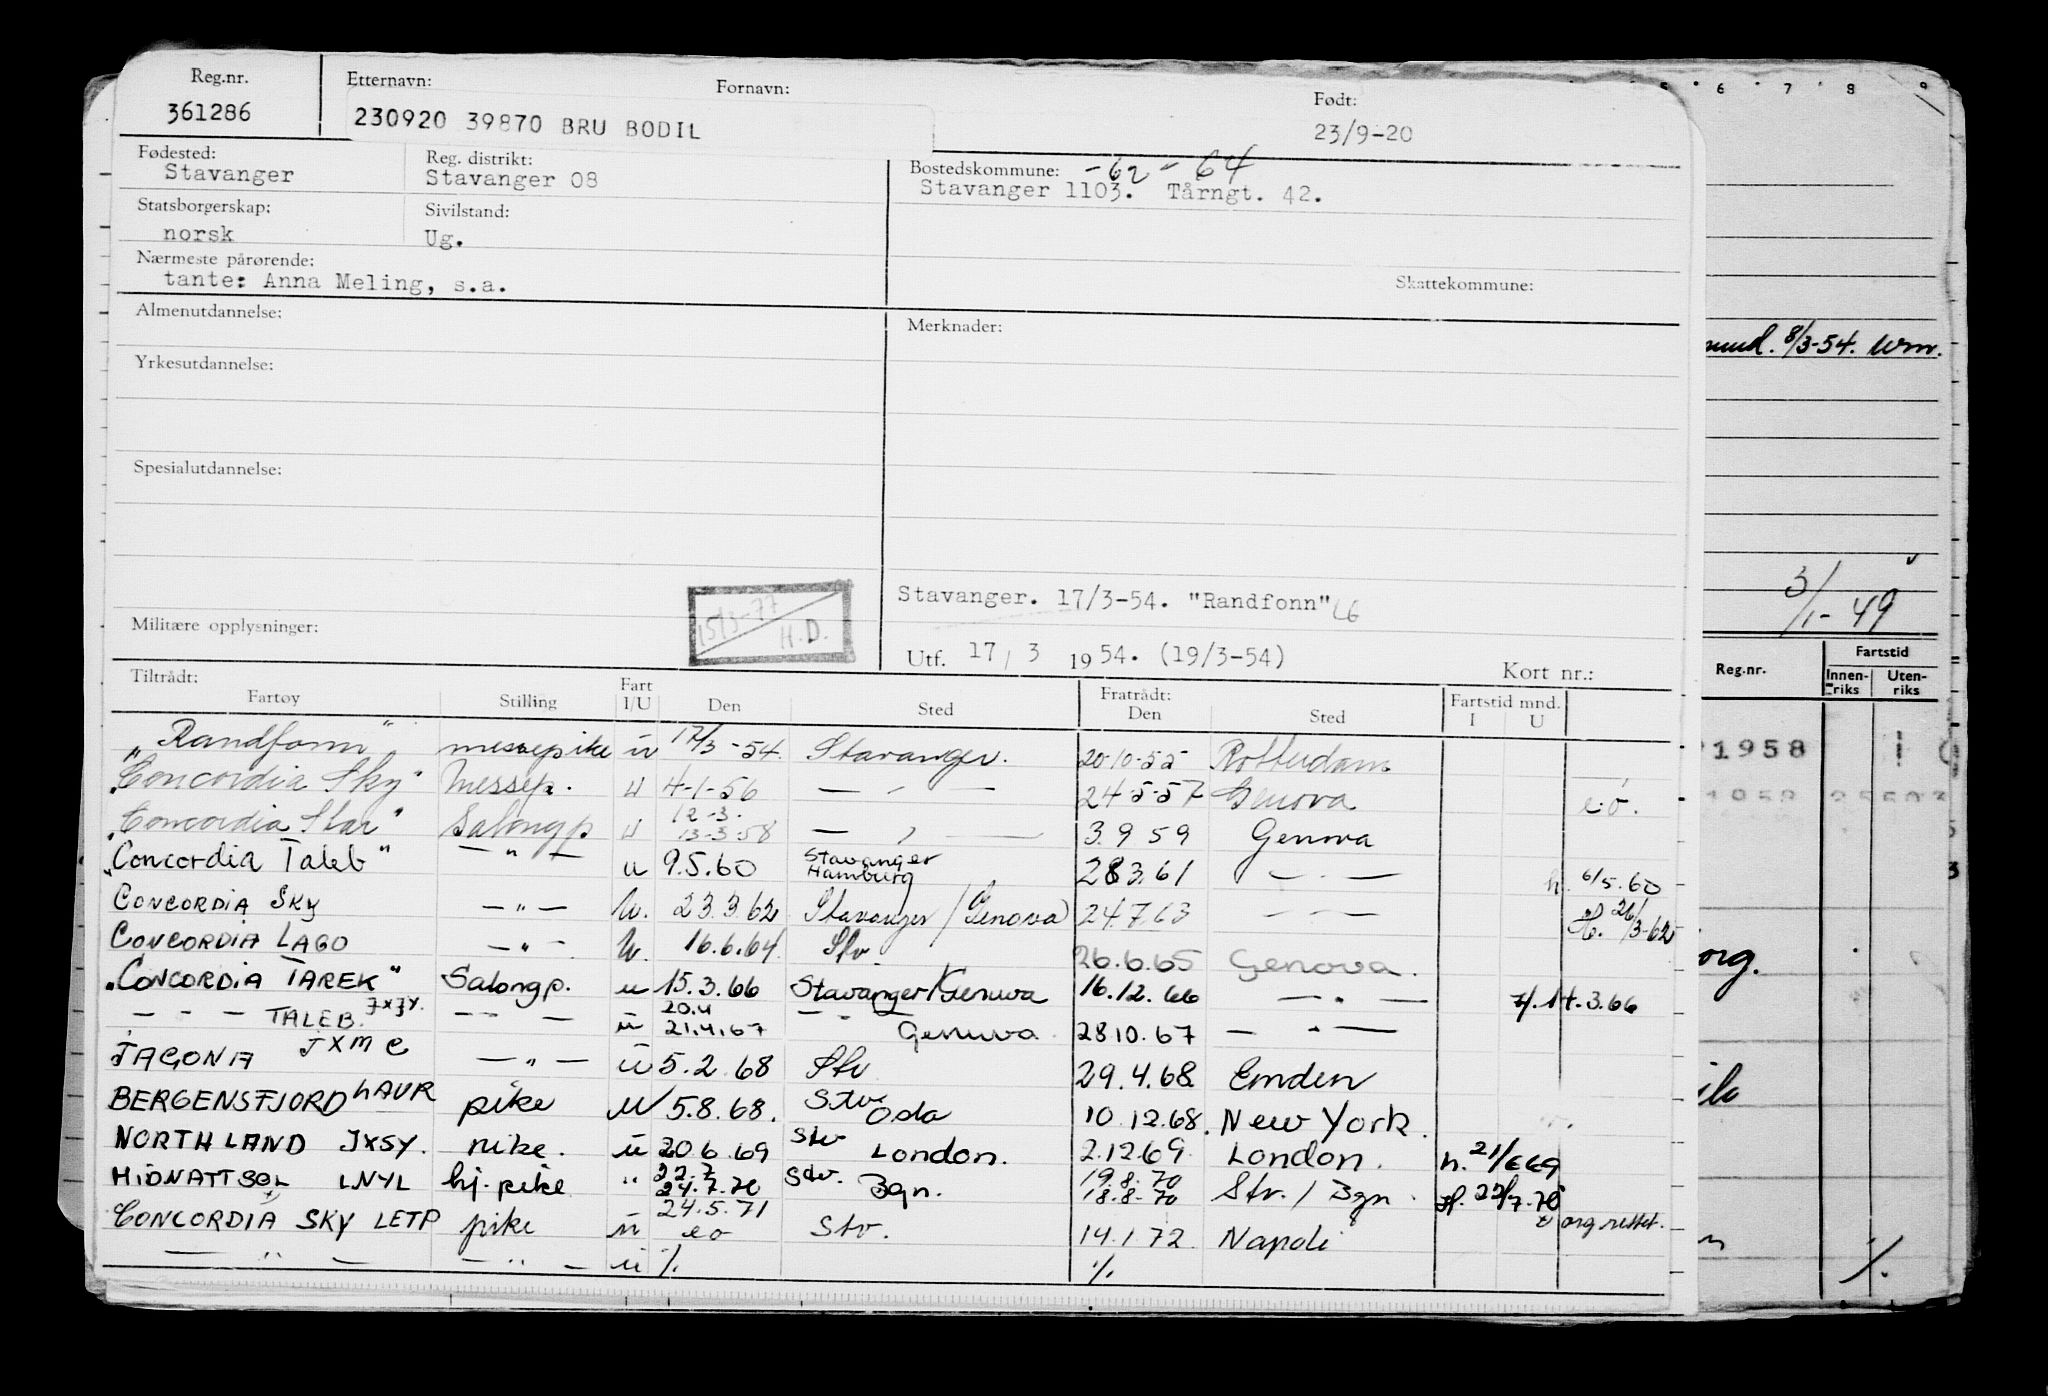 Reg.nr. Etternavn: Fornavn: Født:
361286 230920 39870 BRU BODIL 23/9-20
Fødested: Reg. distrikt: Bostedskommune: -62 - 64
Stavanger Stavanger 08 Stavanger 1103. Tårngt. 42.
Statsborgerskap: Sivilstand:
norsk Ug.
Nærmeste pårørende: Skattekommune:
tante: Anna Meling, s.a.
Almenutdannelse: Merknader:
Yrkesutdannelse:
Spesialutdannelse:
15/3-77
H.D.
Stavanger. 17/3-54. "Randfonn"
Militære opplysninger:
Utf. 17 / 3 1954. (19/3-54) Kort nr.:
Tiltrådt: Fratrådt:
Fartøy Stilling Fart I/U Den Sted Den Sted Fartstid mnd. I U
"Randfonn" messepike u 17/3-54 Stavanger. 20-10-55 Rotterdam
"Concordia Sky" Messep. u 4-1-56 — " — 24-5-57 Genova e.o.
"Concordia Star" Salongp u 12-3. 13-3-58 — " — 3.9 59 Genova
"Concordia Taleb" — " — u 9.5.60 Stavanger Hamburg 28 3.61 — " — h. 6/5.60
CONCORDIA SKY — " — u. 23.3.62 Stavanger / (Genova) 24.7.63 — " — H. 26/3-62
CONCORDIA LAGO — " — u. 16.6.64 Stv 26.6.65 Genova.
"CONCORDIA TAREK" Salongp. u 15.3.66 Stavanger/Genova 16.12.66 — " — H. 14.3.66
— " — TALEB JXJY. — " — u 20.4 21.4.67 — " — Genova 28 10.67 — " —
JAGONA JXMC — " — u 5.2.68 Stv 29.4.68 Emden
BERGENSFJORD LAUR pike u 5.8.68. Stv Oslo 10.12.68. New York.
NORTHLAND JXSY. pike. u 20.6.69 Stv London. 2.12.69. London. h. 21/6 69
MIDNATTSOL LNYL hj.pike " 22.7 24.7.70 Stv. Bgn. 19.8.70 18.8-70 Stv. / Bgn. H. 22/7-70
CONCORDIA SKY LETP pike u 24.5.71 eo Stv. 14.1.72 Napoli
— " — — " — u %. %.
6 7 8 9
mund. 8/3-54. Wm.
3/1-49
Reg.nr. Fartstid
Innen-riks Uten-riks
1958